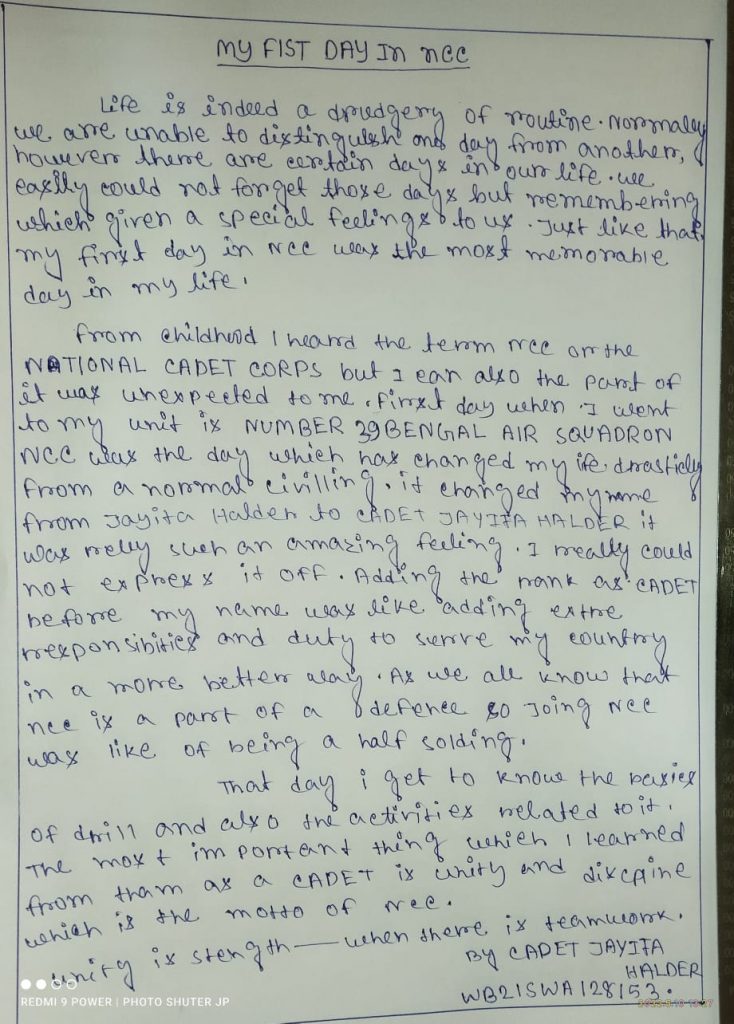 MY FIST DAY In nCC
Life is indeed a drudgery of routine. Normaley
we are unable to distinguish one day from another,
however there are certain days in our life. we
easily could not forget those days but remembering
which given a special feelings to us. Just like that
my first day in NCC was the most memorable
day in my life.
from childhood I heard the term NCC or the
NATIONAL CADET CORPS but I can also the part of
it was unexpected to me. first day when I went
to my unit is NUMBER 39 BENGAL AIR SQUADRON
NCC was the day which has changed my ife drasticly
from a normal civilling. it changed my name
from Jayita Halder to CADET JAYITA HALDER it
was relly such an amazing feeling. I really could
not express it off. Adding the rank as CADET
before my name was like adding extre
responsibities and duty to serve my country
in a more better way. As we all know that
ncc is a part of a defence so Joing NCC
was like of being a half solding.
That day i get to know the basics
of drill and also the activities related to it.
The most important thing which I learned
from tham as a CADET is unity and discpine
which is the motto of NCC.
unity is stength — when there is teamwork.
By CADET JAYITA
HALDER
WB21SWA128153.
REDMI 9 POWER | PHOTO SHUTER JP